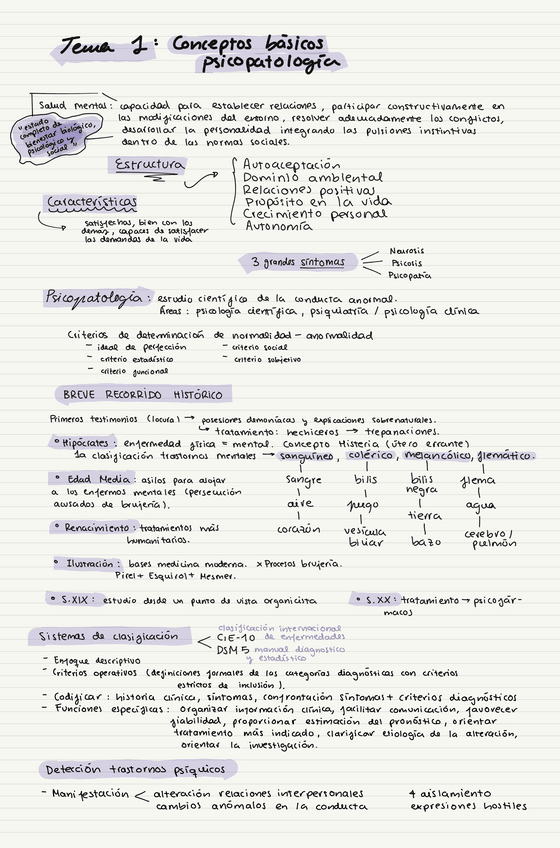 Tema 1: Conceptos básicos
psicopatología
Salud mental: capacidad para establecer relaciones, participar constructivamente en
las modificaciones del entorno, resolver adecuadamente los conflictos,
desarrollar la personalidad integrando las pulsiones instintivas
dentro de las normas sociales.
"estado
completo de
bienestar biológico,
psicológico y
social"
Estructura
Autoaceptación
Dominio ambiental
Relaciones positivas
Propósito en la vida
Crecimiento personal
Autonomía
Características
satisfechos, bien con los
demás, capaces de satisfacer
las demandas de la vida
3 grandes síntomas
Neurosis
Psicosis
Psicopatía
Psicopatología: estudio científico de la conducta anormal.
Áreas: psicología científica, psiquiatría / psicología clínica
Criterios de determinación de normalidad - anormalidad
- ideal de perfección - criterio social
- criterio estadístico - criterio subjetivo
- criterio funcional
BREVE RECORRIDO HISTÓRICO
Primeros testimonios (locura) → posesiones demoníacas y explicaciones sobrenaturales.
↳ tratamiento: hechiceros → trepanaciones.
• Hipócrates: enfermedad física = mental. Concepto Histeria (útero errante)
1a clasificación trastornos mentales → sanguíneo, colérico, melancólico, flemático.
• Edad Media: asilos para alojar
a los enfermos mentales (persecución
acusados de brujería).
sangre bilis bilis negra flema
aire fuego tierra agua
corazón vesícula biliar bazo cerebro/pulmón
• Renacimiento: tratamientos más
humanitarios.
• Ilustración: bases medicina moderna. x Procesos brujería.
Pinel + Esquirol + Mesmer.
• S.XIX: estudio desde un punto de vista organicista
• S.XX: tratamiento → psicofár-
macos
Sistemas de clasificación
clasificación internacional
CIE-10 de enfermedades
DSM 5 manual diagnostico
y estadístico
- Enfoque descriptivo
- Criterios operativos (definiciones formales de las categorías diagnósticas con criterios
estrictos de inclusión).
- Codificar: historia clínica, síntomas, confrontación síntomas + criterios diagnósticos
- Funciones específicas: organizar información clínica, facilitar comunicación, favorecer
fiabilidad, proporcionar estimación del pronóstico, orientar
tratamiento más indicado, clarificar etiología de la alteración,
orientar la investigación.
Detección trastornos psíquicos
- Manifestación < alteración relaciones interpersonales
cambios anómalos en la conducta
aislamiento
expresiones hostiles